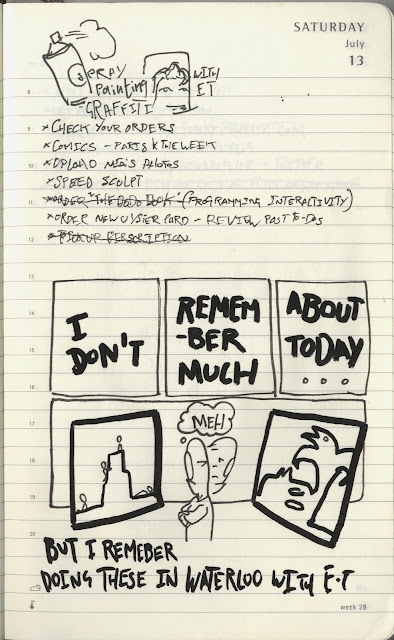 SATURDAY
July
13
SPRAY
Painting
GRAFFITI
WITH
E.T
8
9
10
11
12
13
14
15
16
17
18
19
20
×CHECK YOUR ORDERS
×COMICS - PARIS & THE WEEK
×UPLOAD MIA'S PHOTOS
×SPEED SCULPT
×ORDER "THE DODO BOOK" (PROGRAMMING INTERACTIVITY)
×ORDER NEW OYSTER CARD - REVIEW PAST TO-DOS
×PICKUP PERSCRIPTION
I
DON'T
REMEM
-BER
MUCH
ABOUT
TODAY
...
MEH
BUT I REMEBER
DOING THESE IN WATERLOO WITH E.T
week 28